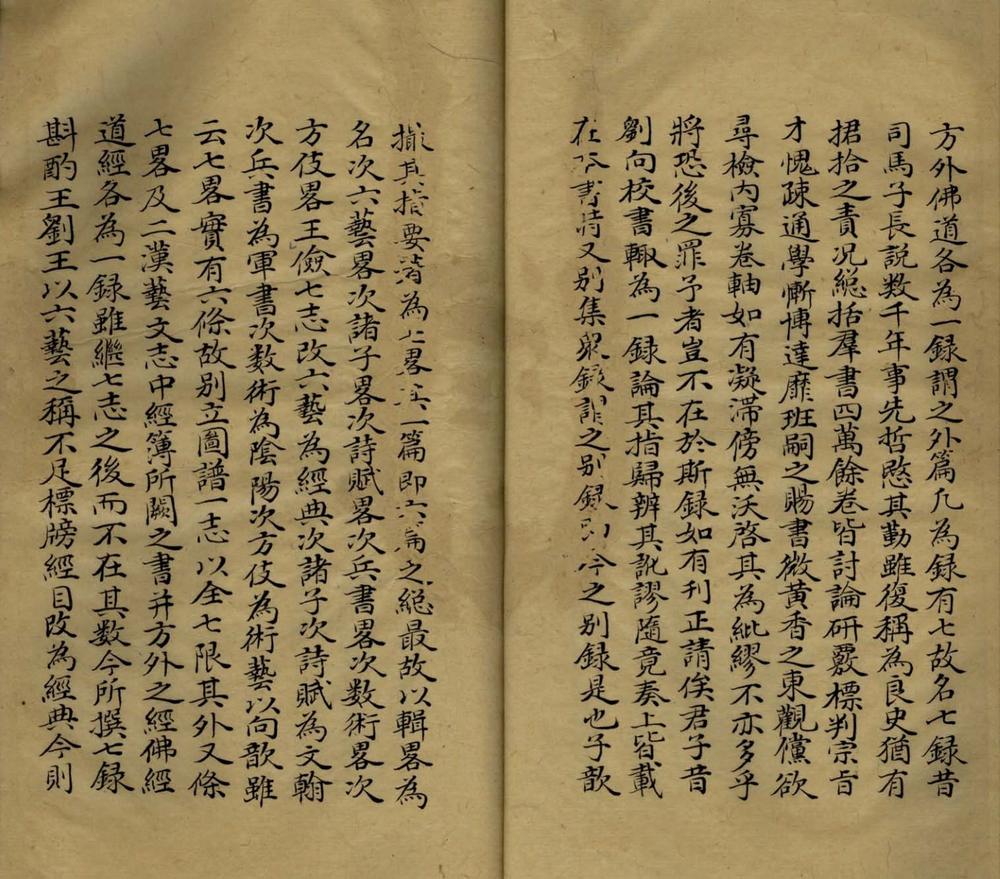 方外佛道各為一録謂之外篇凡為録有七故名七録昔
司馬子長説数千年事先哲愍其勤雖復稱為良史猶有
捃拾之責況緫括羣書四萬餘卷皆討論研覈標判宗旨
才愧疎通學慚博達靡班嗣之賜書微黄香之東觀儻欲
尋檢内寡卷軸如有凝滯傍無沃啓其為紕繆不亦多乎
將恐後之罪予者豈不在於斯録如有刋正請俟君子昔
劉向校書輙為一録論其指歸辨其訛謬隨竟奏上皆載
在本書時又别集衆録謂之别録即今之别録是也子歆
撮其指要著為七畧其一篇即六篇之緫最故以輯畧為
名次六藝畧次諸子畧次詩賦畧次兵書畧次数術畧次
方伎畧王儉七志改六藝為經典次諸子次詩賦為文翰
次兵書為軍書次数術為陰陽次方伎為術藝以向歆雖
云七畧實有六條故别立圖譜一志以全七限其外又條
七畧及二漢藝文志中經簿所闕之書并方外之經佛經
道經各為一録雖繼七志之後而不在其数今所撰七録
斟酌王劉王以六藝之稱不足標牓經目改為經典今則